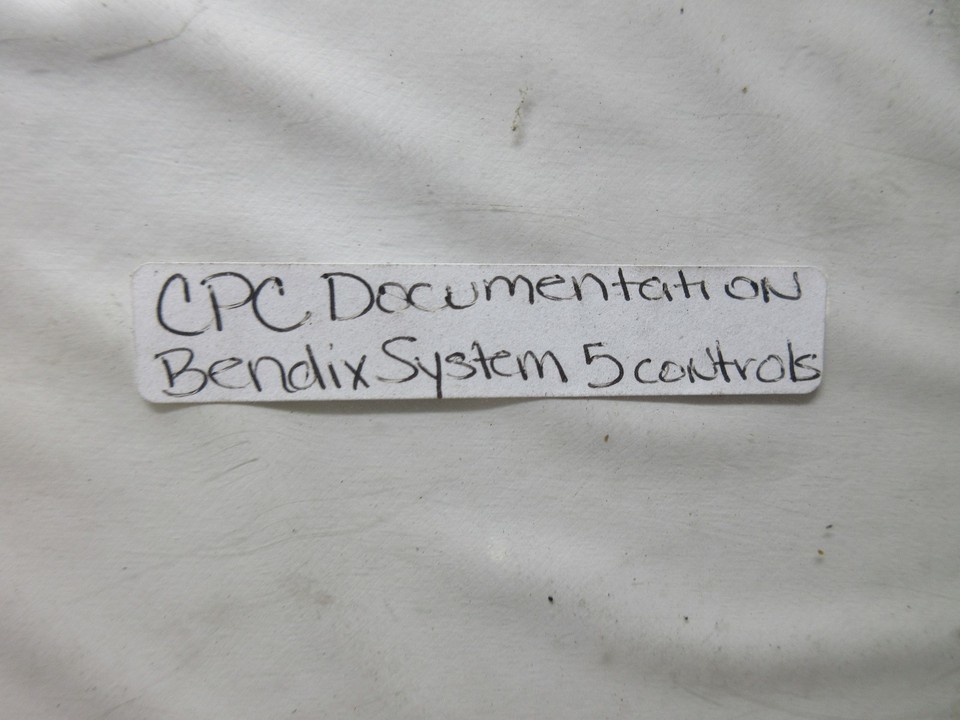 CPC Documentation
Bendix System 5 controls